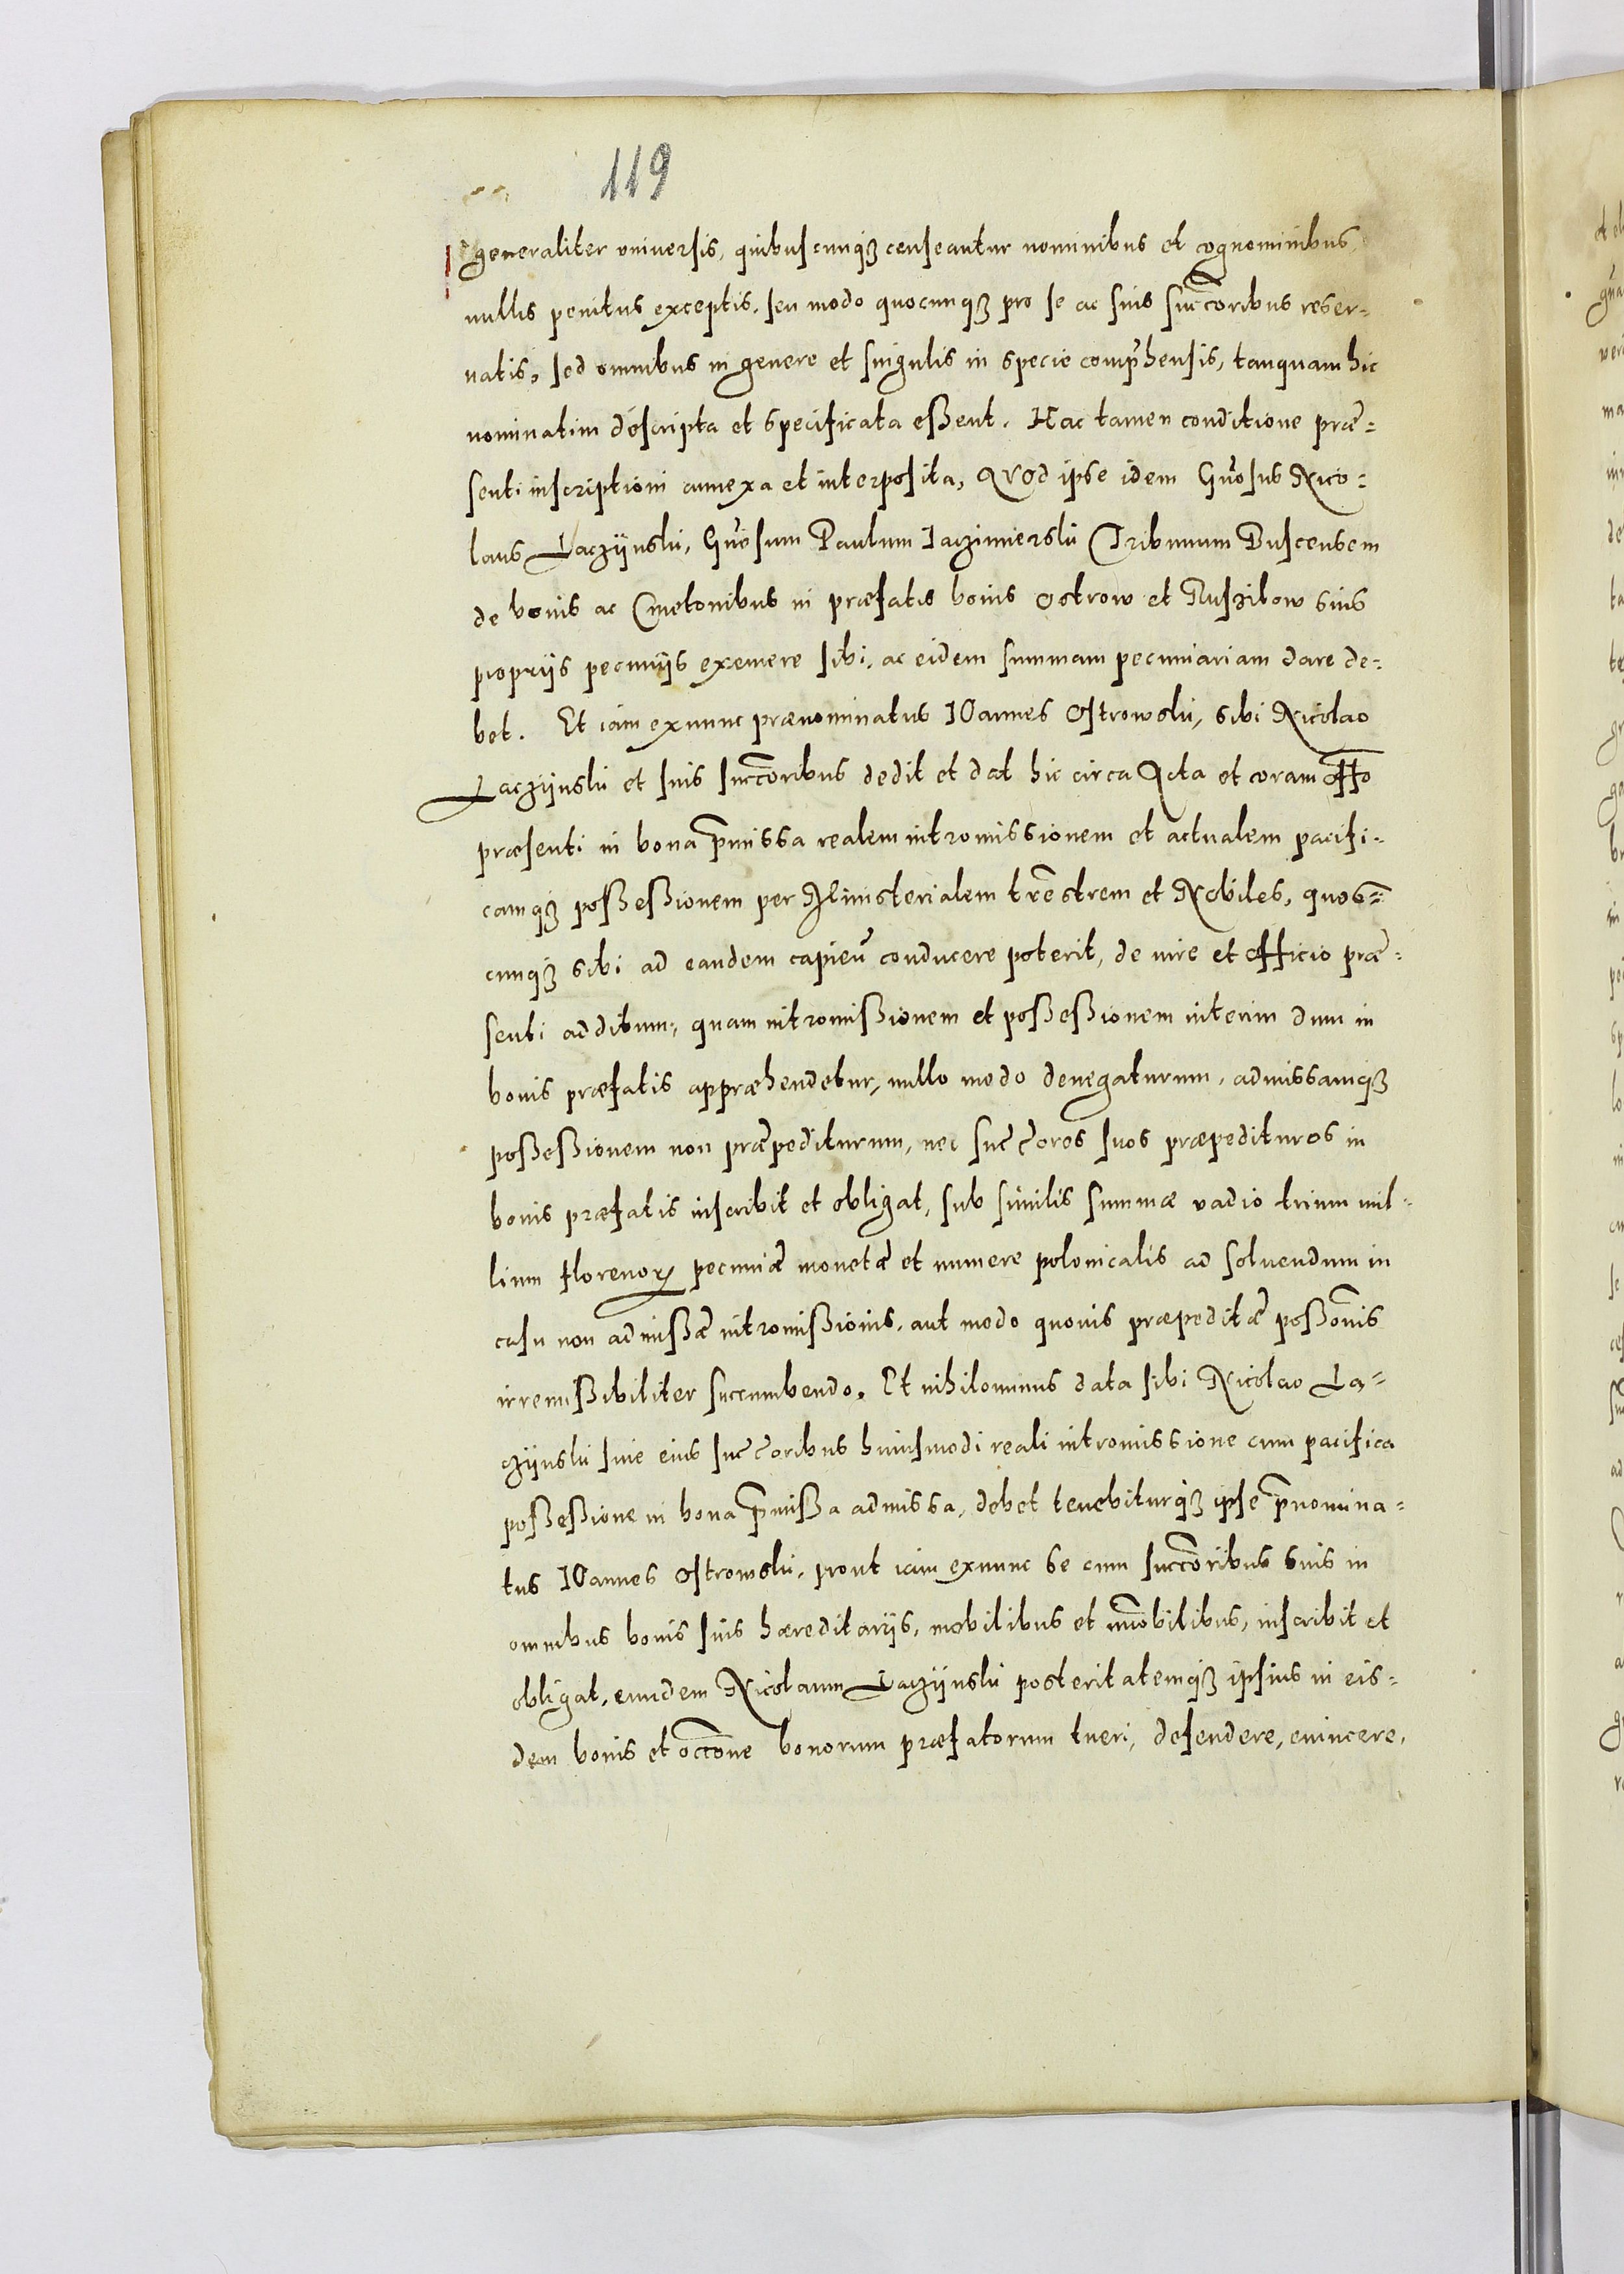 119
generaliter vniuersis, quibuscunqȝ censeantur nominibus et cognominibus
nullis penitus exceptis, seu modo quocunqȝ pro se ac suis succ̄oribus reser-
uatis, sed omnibus in genere et singulis in specie comp̄hensis, tanquam hic
nominatim descripta et specificata essent. Hac tamen conditione præ-
senti inscriptioni annexa et interposita, Quod ipse idem Gn̄osus Nico-
laus Laczÿnski, Gn̄osum Paulum Jaczimierski Tribunum Buscensem
de bonis ac Cmetonibus in præfatis bonis Ostrow et suis
proprijs pecunijs exemere sibi, ac eidem summam pecuniariam dare de-
bet. Et iam exnunc prænominatus IOannes Ostrowski, sibi Nicolao
Laczÿnski et suis succ̄oribus dedit et dat hic circa Acta et coram Off̄o
præsenti in bona p̄missa realem intromissionem et actualem pacifi-
camqȝ possessionem per Ministerialem tr̄estrem et Nobiles, quos-
cunqȝ sibi ad eandem capien̄ conducere poterit, de iure et officio præ-
senti additum, quam intromissionem et possessionem interim dum in
bonis præfatis appræhendetur, nullo modo denegaturum, admissamqȝ
possessionem non præpediturum, nec succ̄ores suos præpedituros in
bonis præfatis inscribit et obligat, sub similis summæ vadio trium mil-
lium florenorꝝ pecuniæ monetæ et numere polonicalis ad soluendum in
casu non admissæ intromissionis, aut modo quouis præpeditæ poss̄onis
irremissibiliter succumbendo. Et nihilominus data sibi Nicolao La-
czÿnski siue eius succ̄oribus huiusmodi reali intromissione cum pacifica
possessione in bona p̄missa admissa, debet tenebiturqȝ ipse p̄nomina-
tus IOannes Ostrowski, prout iam exnunc se cum succ̄oribus suis in
omnibus bonis suis hæreditarijs, mobilibus et im̄obilibus, inscribit et
obligat, eundem Nicolaum Laczÿnski posteritatemqȝ ipsius in eis-
dem bonis et occ̄one bonorum præfatorum tueri, defendere, euincere,